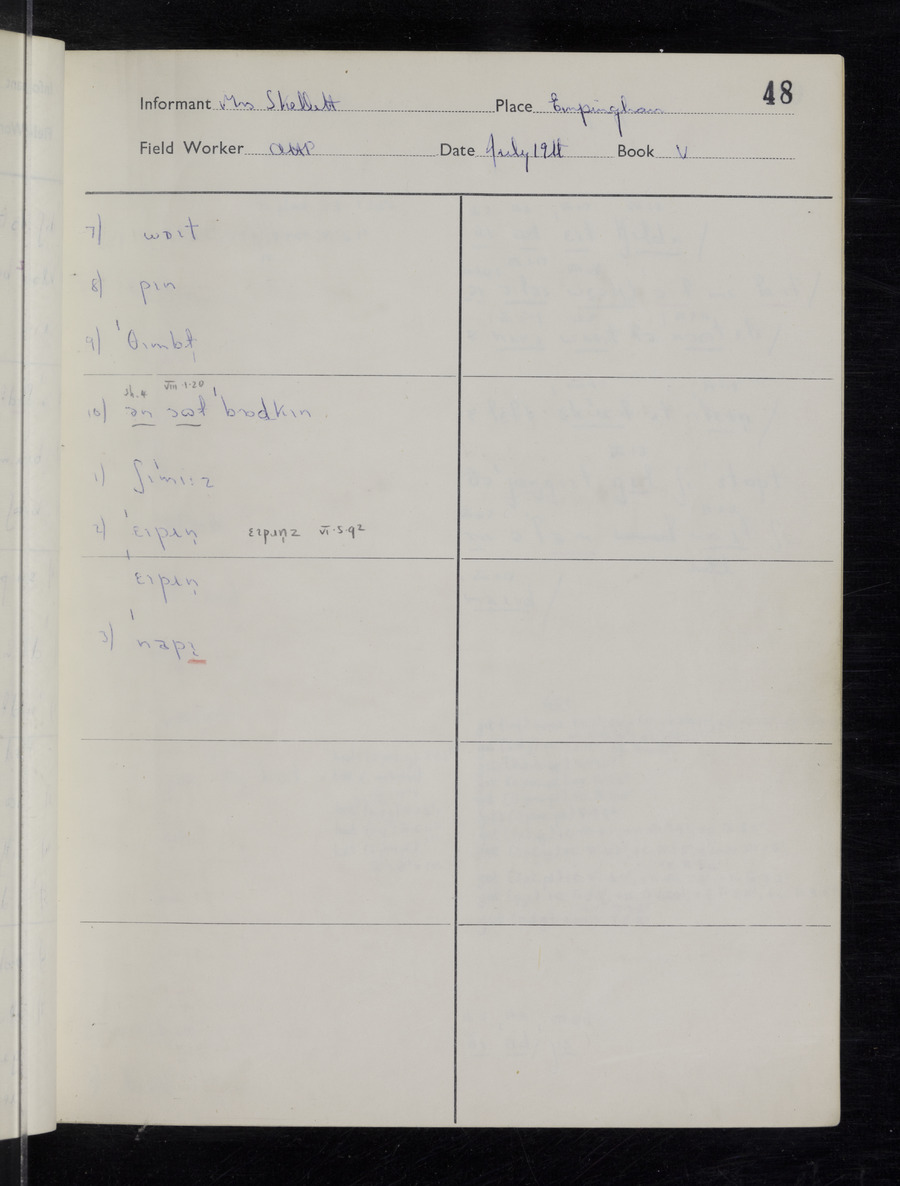 48
Informant Mrs Skellett Place Empingham
Field Worker Date July Book V
7) wɒɪt
8) pɪn
9) ˈθɪmbɫ̩
VIII·1·20
10) ən ɔʊɫ ˈbɒdkɪn
1) ʃɪˈmiːz
2) ˈɛɪpɹɪn ɛɪpɹɪnz VI·5·9²
ˈɛɪpɹɪn
3) ˈnapɪ